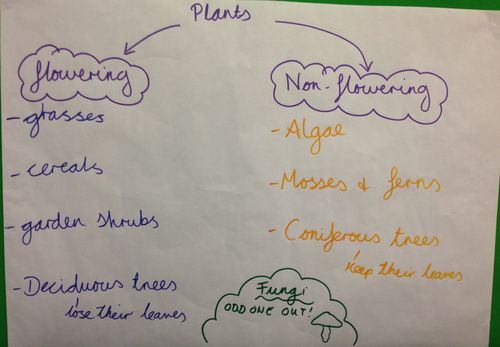 Plants
flowering
- grasses
- cereals
- garden shrubs
- Deciduous trees
lose their leaves
Non-flowering
- Algae
- Mosses & ferns
- Coniferous trees
Keep their leaves
Fungi
ODD ONE OUT!